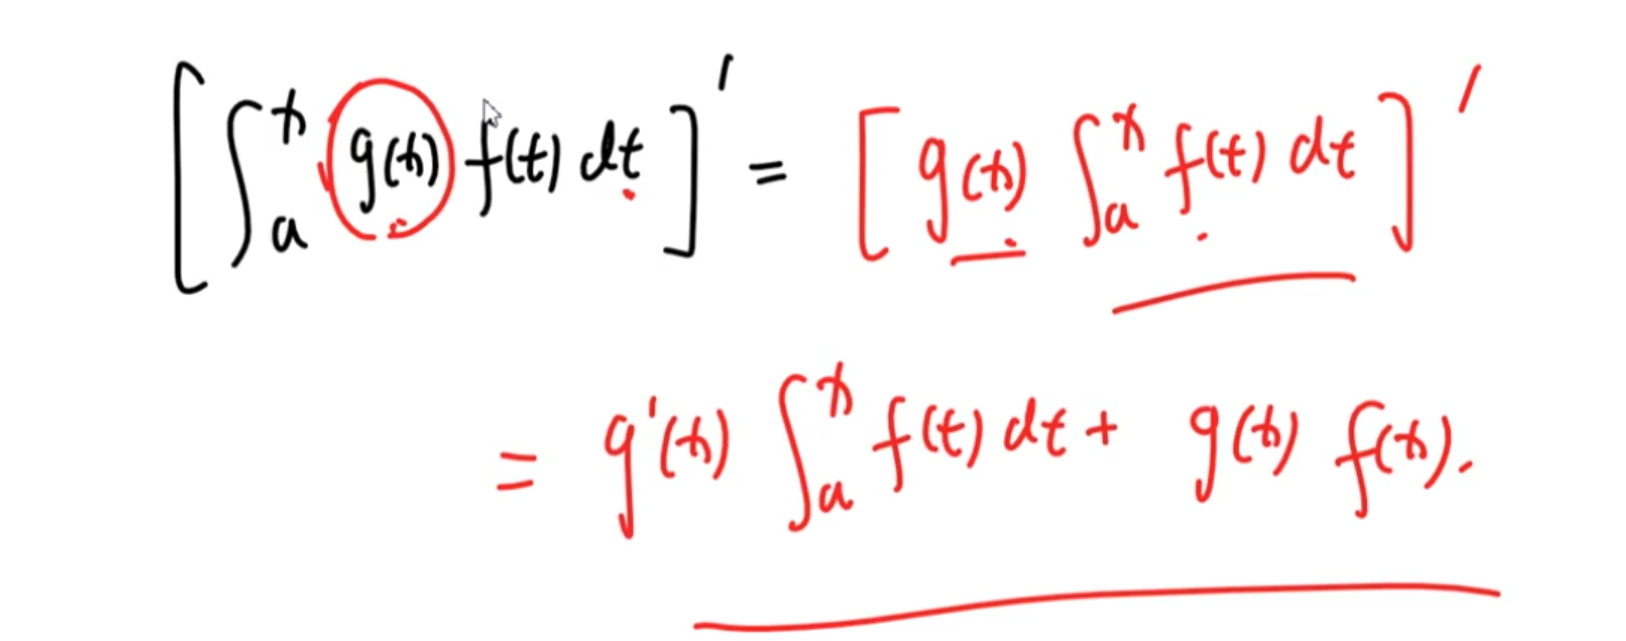 [∫ₐˣ g(x) f(t) dt]′ = [g(x) ∫ₐˣ f(t) dt]′
= g′(x) ∫ₐˣ f(t) dt + g(x) f(x).